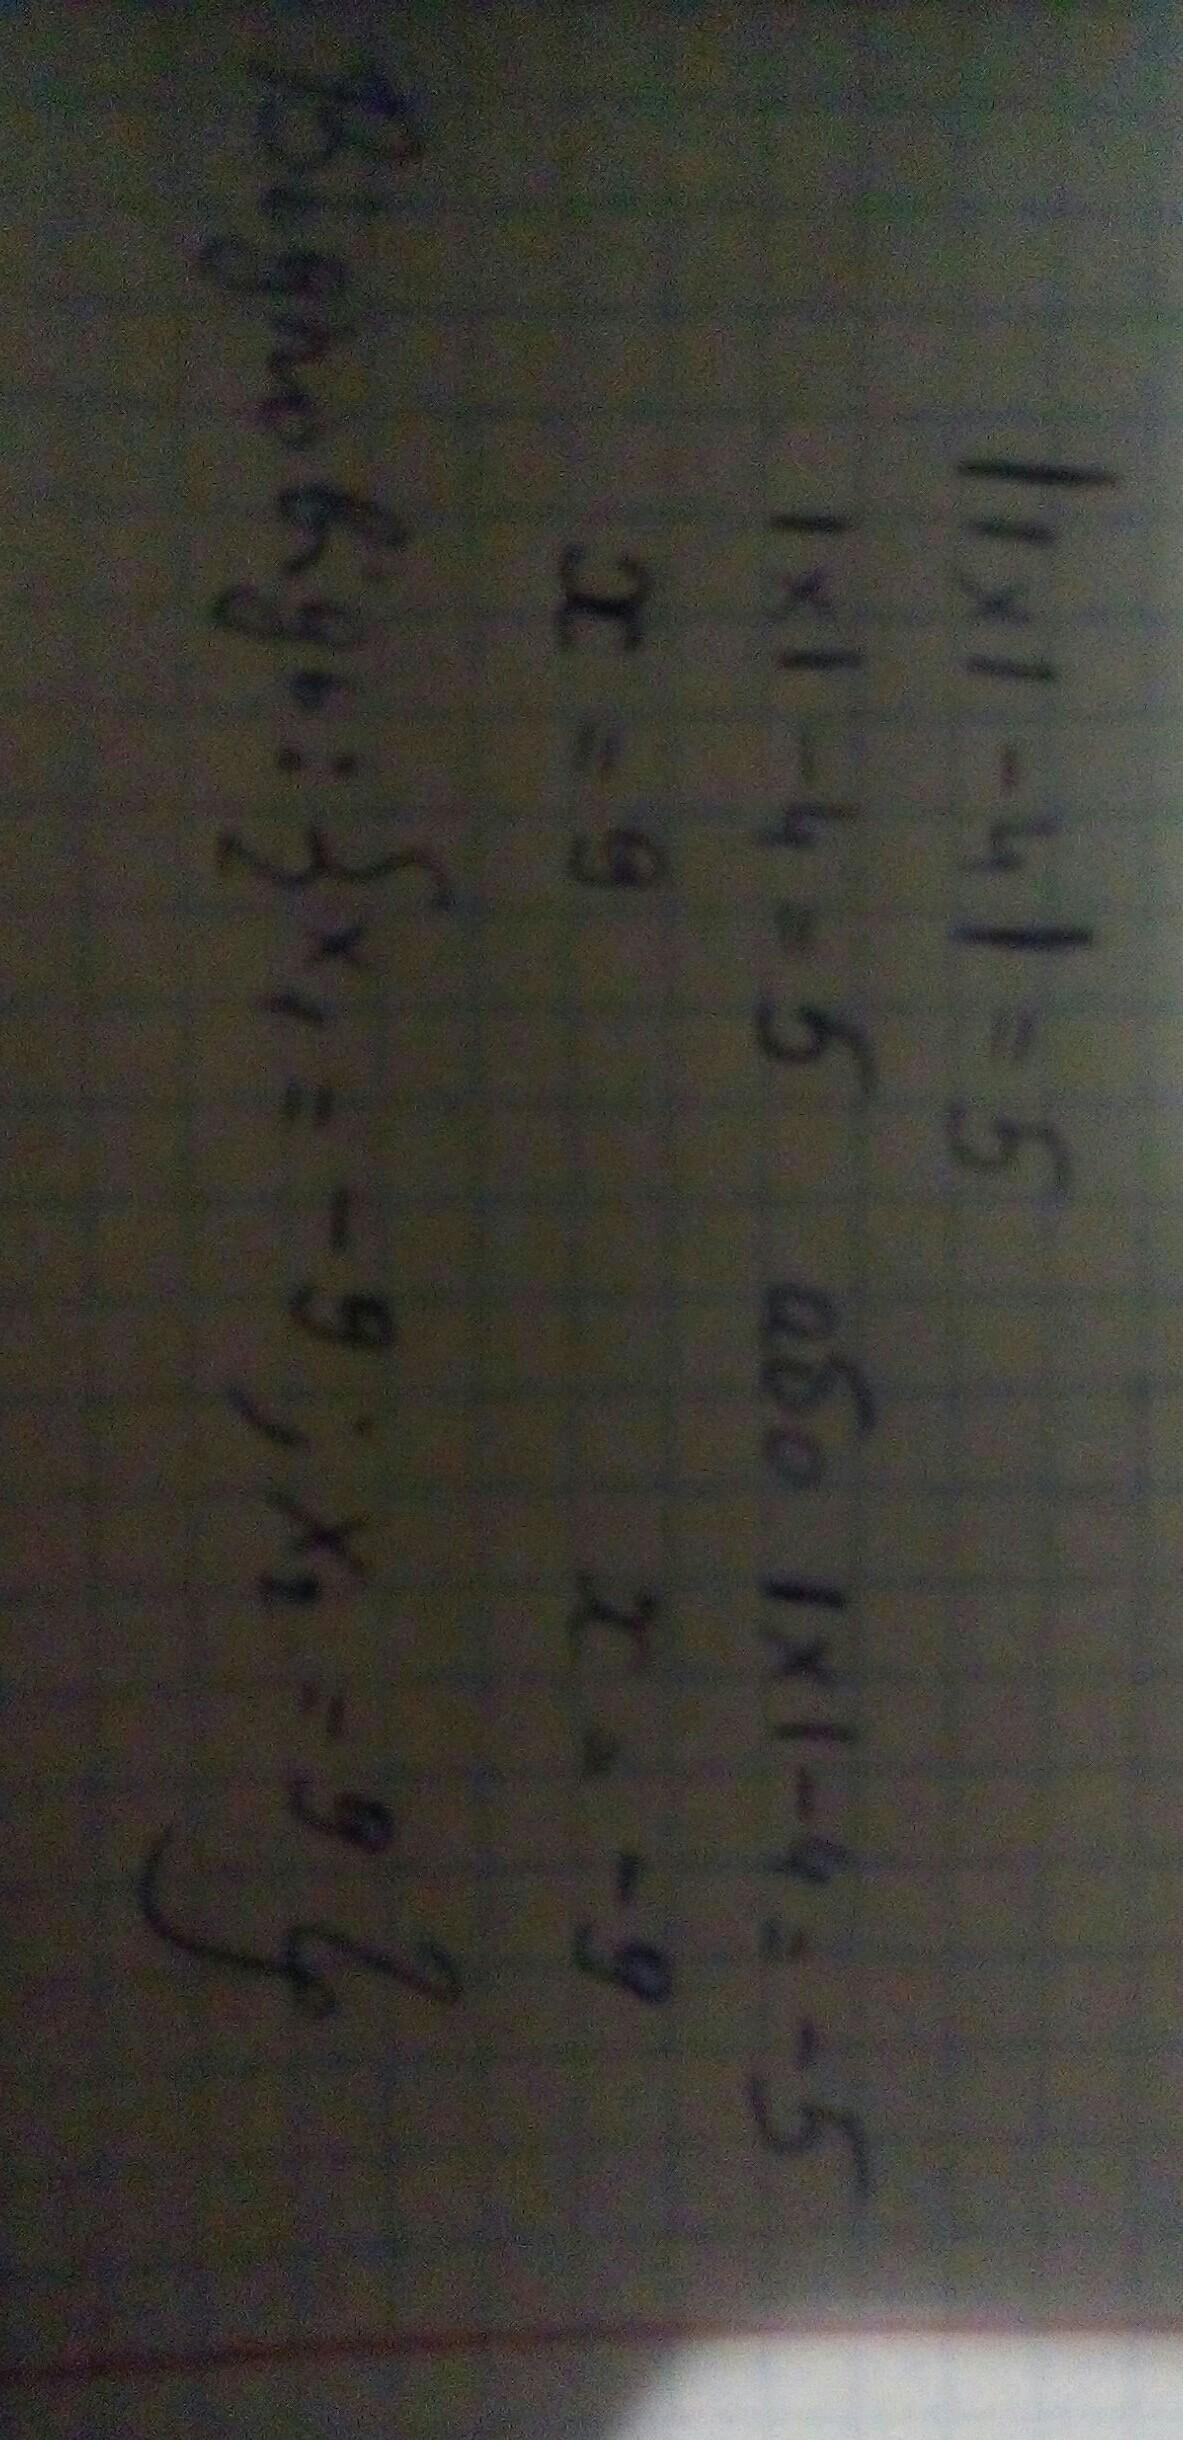 ||x|-4|=5
|x|-4=5 або |x|-4=-5
x=9 x=-9
Відповідь: {x₁=-9; x₂=9}